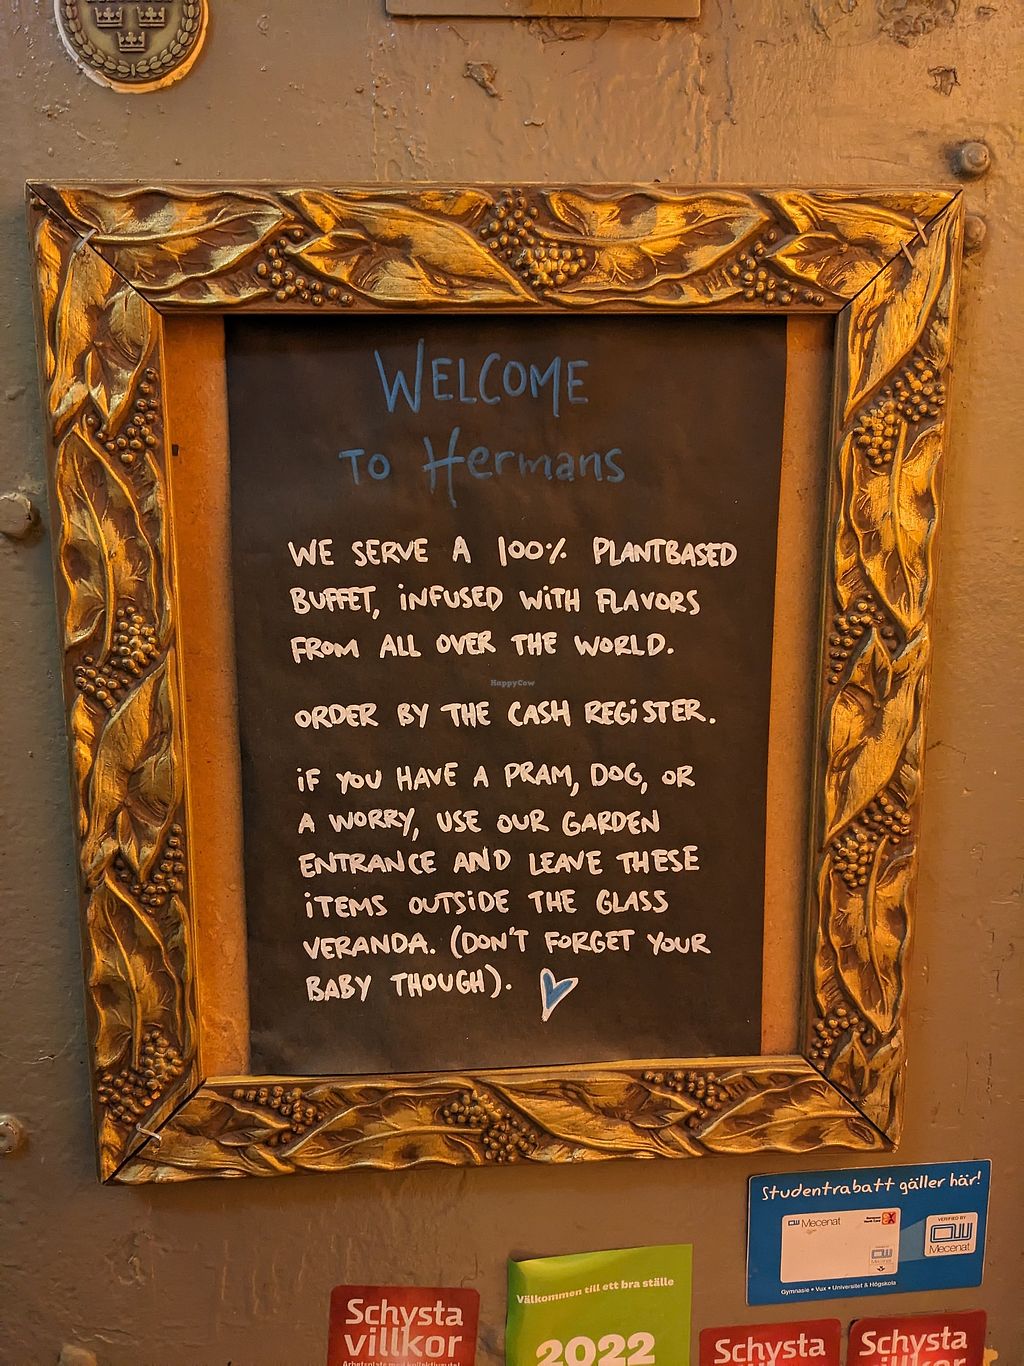 WELCOME
TO Hermans
WE SERVE A 100% PLANTBASED
BUFFET, iNFUSED WiTH FLAVORS
FROM ALL OVER THE WORLD.
HappyCow
ORDER BY THE CASH REGiSTER.
iF YOU HAVE A PRAM, DOG, OR
A WORRY, USE OUR GARDEN
ENTRANCE AND LEAVE THESE
iTEMS OUTSiDE THE GLASS
VERANDA. (DON'T FORGET YOUR
BABY THOUGH).
Studentrabatt gäller här!
Mecenat
VERIFIED BY
Mecenat
Gymnasie • Vux • Universitet & Högskola
Välkommen till ett bra ställe
2022
Schysta
villkor
Arbetsplats med kollektivavtal
Schysta
Schysta